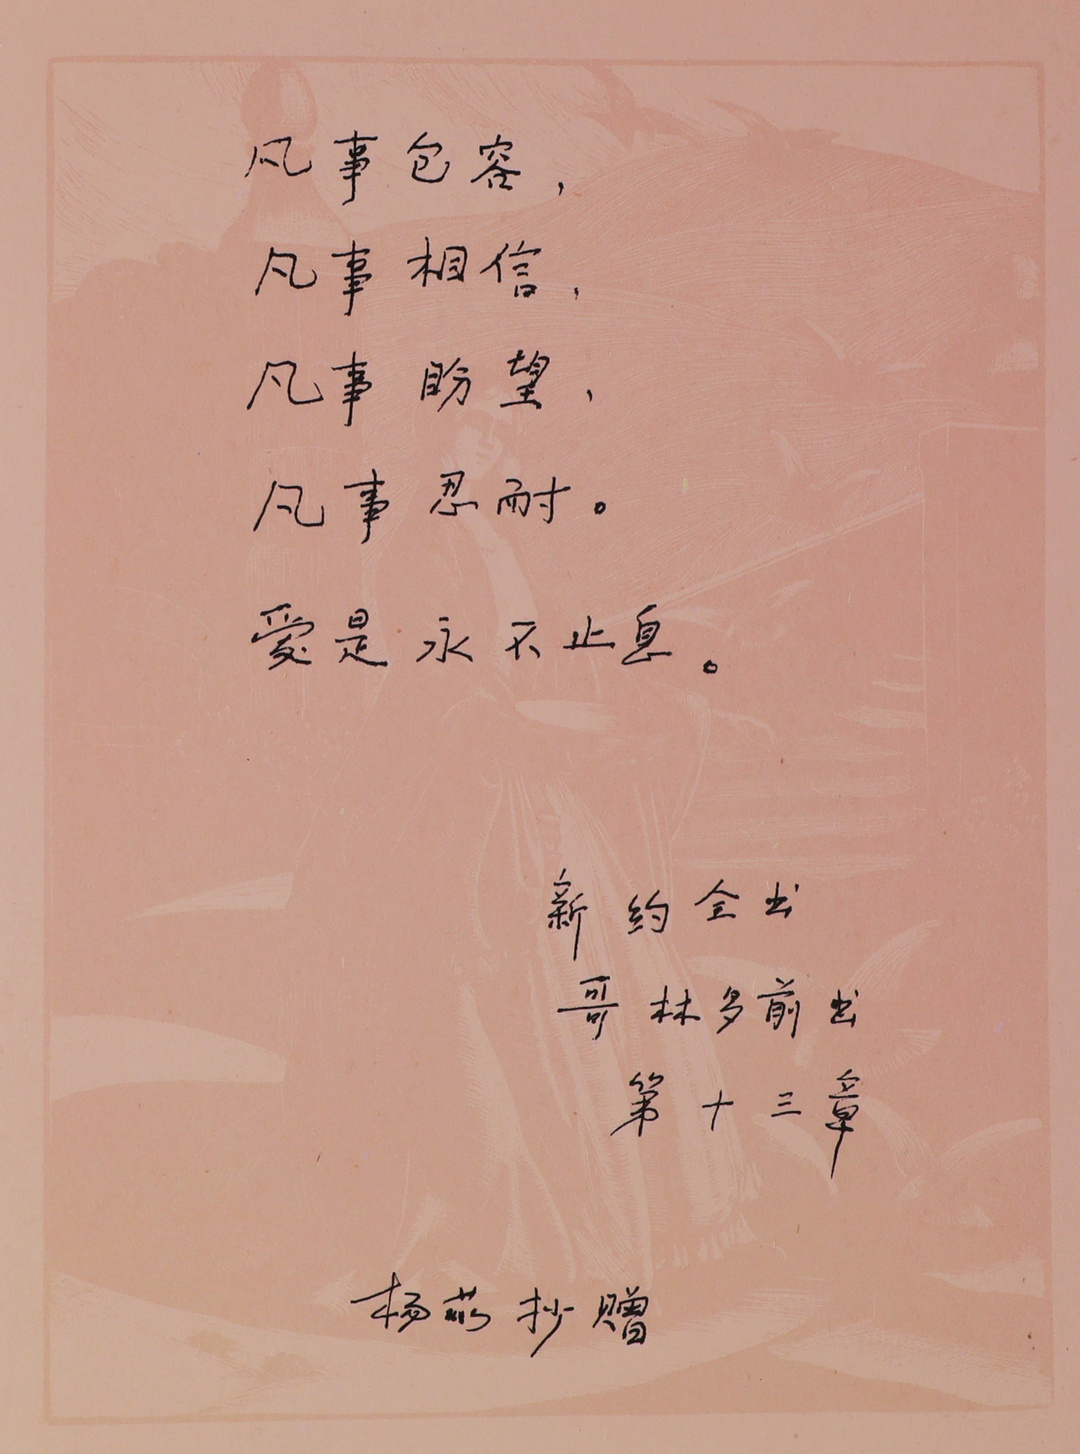 凡事包容，
凡事相信，
凡事盼望，
凡事忍耐。
愛是永不止息。
新约全书
哥林多前书
第十三章
杨苡抄赠